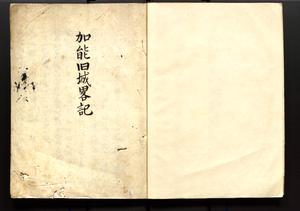 加能旧城畧記